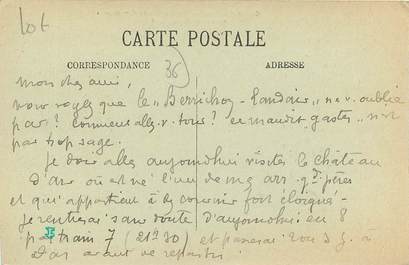 Lot
CARTE POSTALE
CORRESPONDANCE
36
ADRESSE
Mon cher ami,
vous voyez que le "Berrichon-Landais" ne v. oublie
pas? Comment allez-v. tous? ce maudit gaster n'est
pas trop sage.
Je dois aller aujourd'hui visiter le château
d'ar où est né l'un de mes arr. gds pères
et qui appartient à des cousins fort éloignés -
Je rentrerai sans doute d'aujourd'hui en 8
par train 7 (21h30) et passerai vous
avant de repartir.